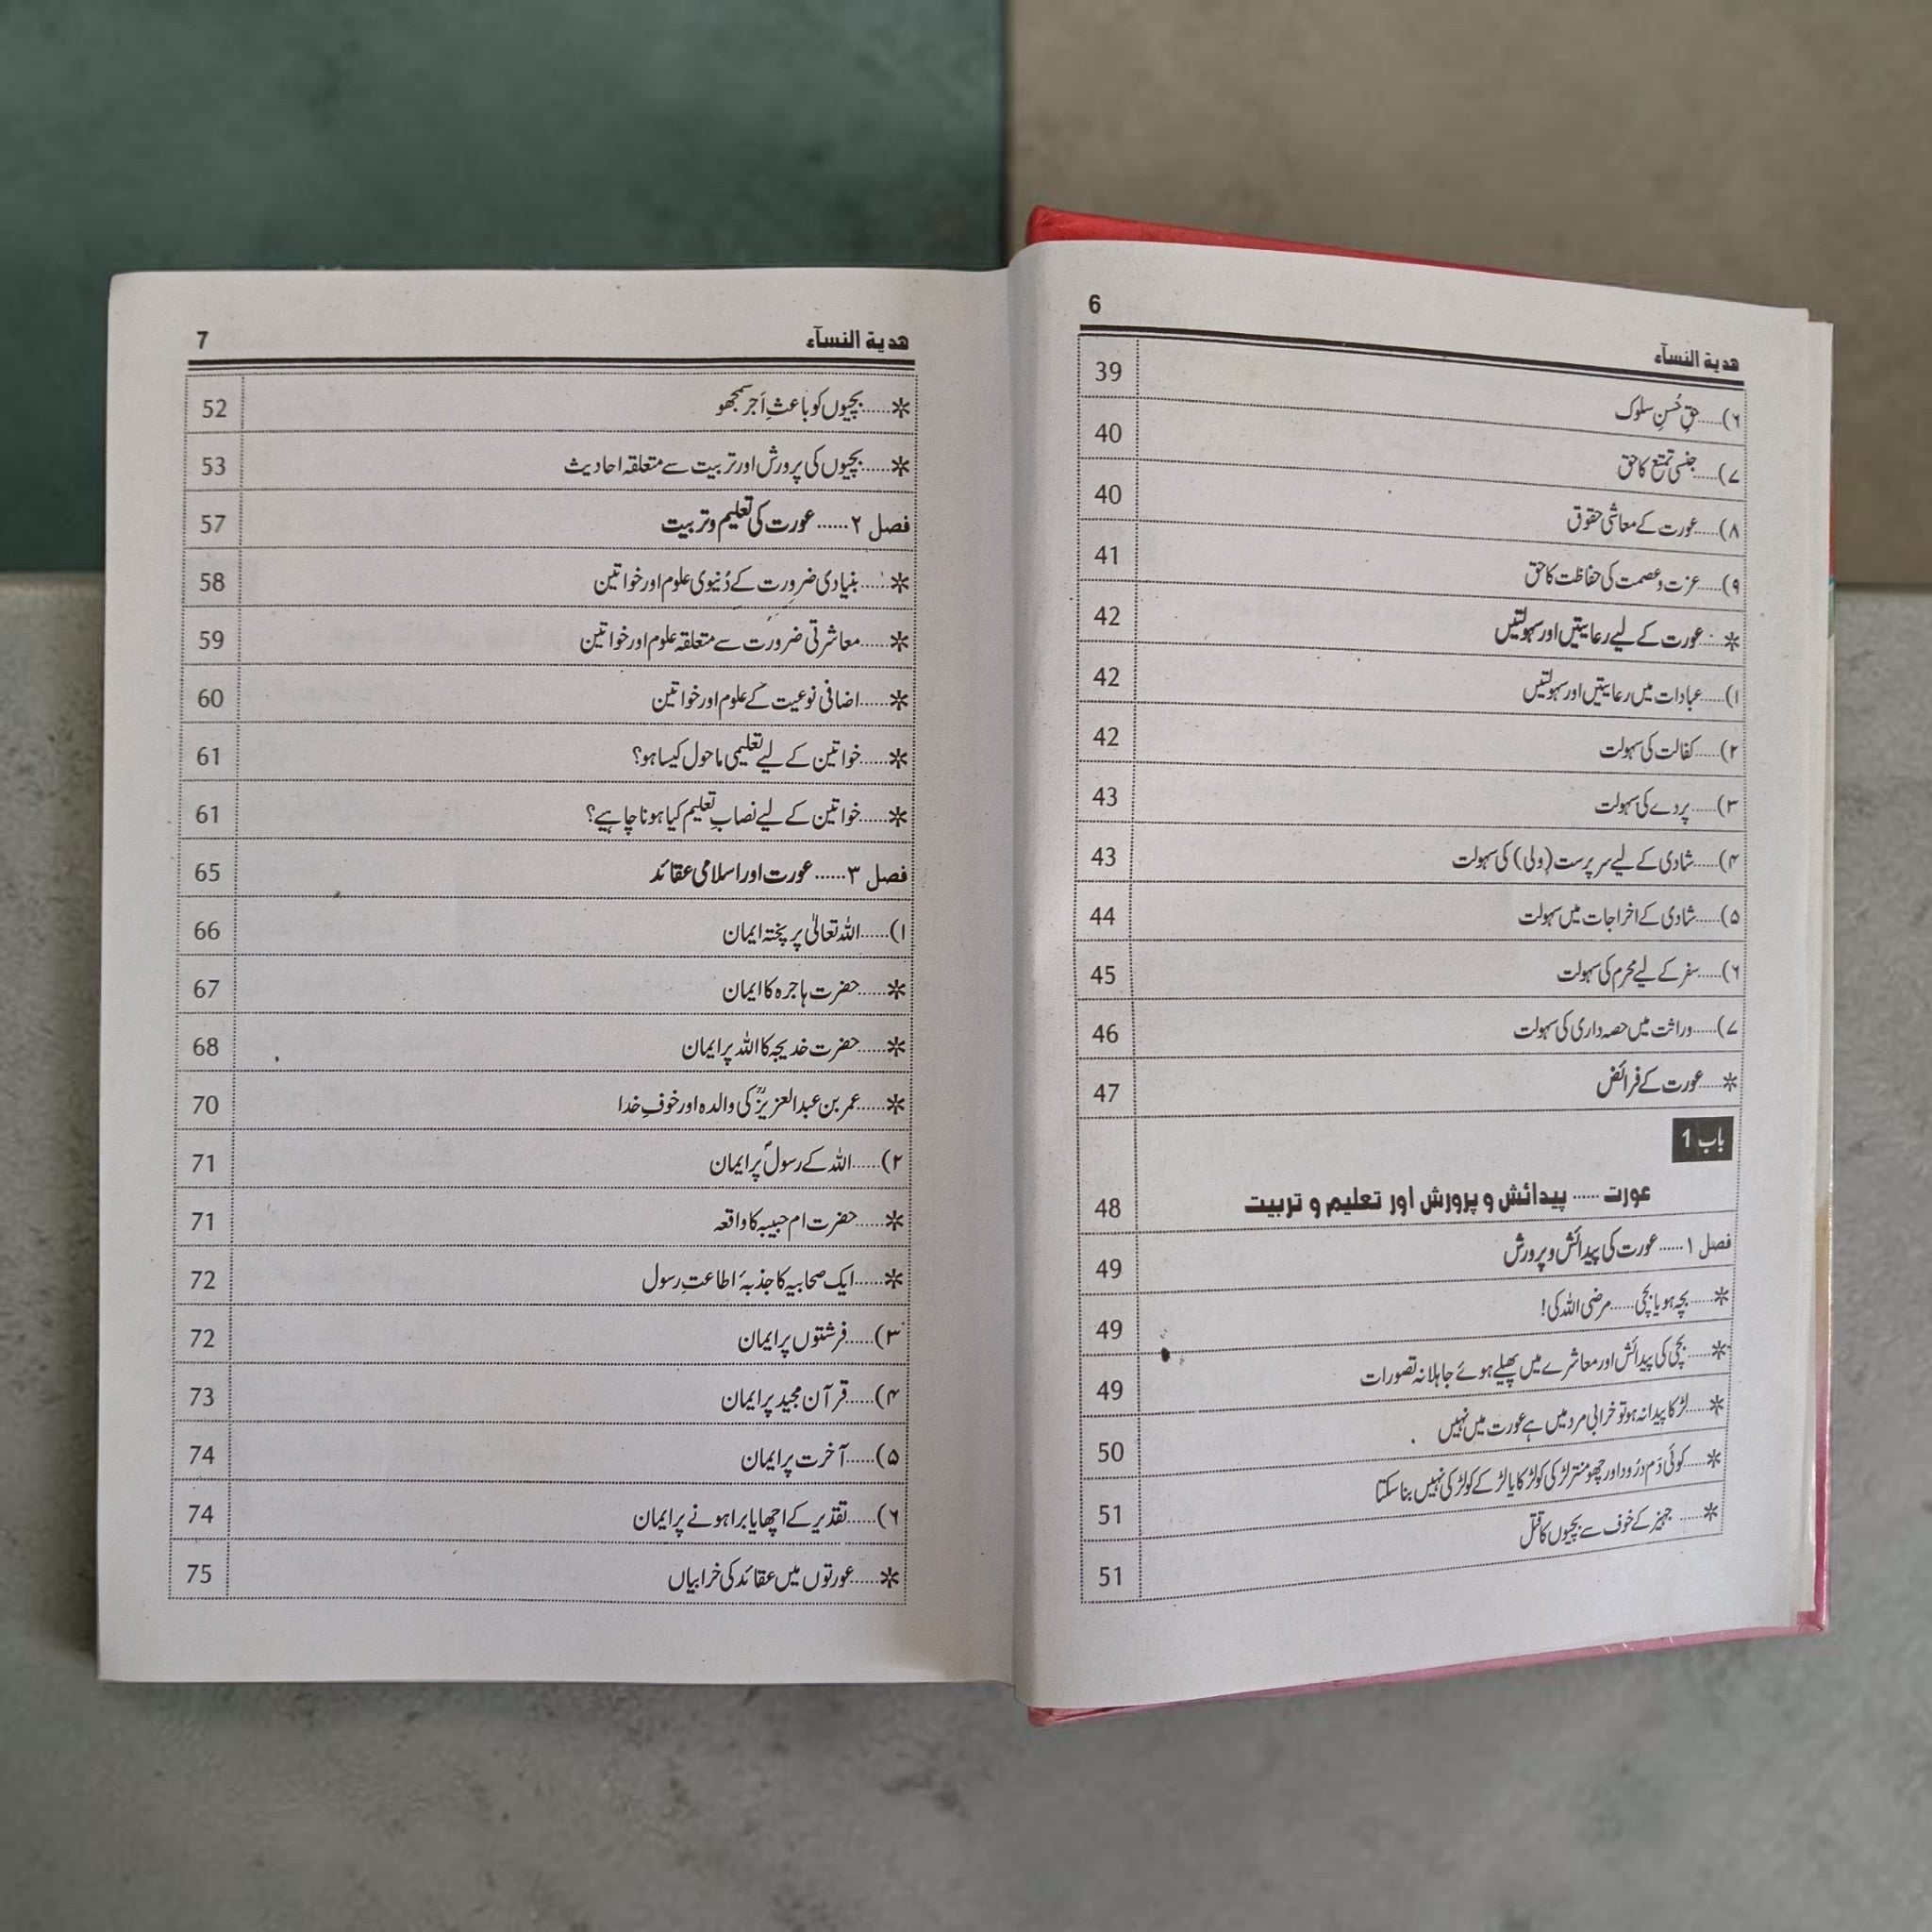 6
هدية النسآء
۶)......حقِ حُسنِ سلوک 39
۷)......جنسی تمتع کا حق 40
۸)......عورت کے معاشی حقوق 40
۹)......عزت و عصمت کی حفاظت کا حق 41
*......عورت کے لیے رعایتیں اور سہولتیں 42
۱)......عبادات میں رعایتیں اور سہولتیں 42
۲)......کفالت کی سہولت 42
۳)......پردے کی سہولت 43
۴)......شادی کے لیے سرپرست (ولی) کی سہولت 43
۵)......شادی کے اخراجات میں سہولت 44
۶)......سفر کے لیے محرم کی سہولت 45
۷)......وراثت میں حصہ داری کی سہولت 46
*......عورت کے فرائض 47
باب 1
عورت ...... پیدائش و پرورش اور تعلیم و تربیت 48
فصل ۱......عورت کی پیدائش و پرورش 49
*......بچہ ہو یا بچی......مرضی اللہ کی! 49
*......بچی کی پیدائش اور معاشرے میں پھیلے ہوئے جاہلانہ تصورات 49
*......لڑکا پیدا نہ ہو تو خرابی مرد میں ہے عورت میں نہیں 50
*......کوئی دَم درُود اور چھومنتر لڑکی کو لڑکا یا لڑکے کو لڑکی نہیں بنا سکتا 51
*......جہیز کے خوف سے بچیوں کا قتل 51
7
هدية النسآء
*......بچیوں کو باعثِ اَجر سمجھو 52
*......بچیوں کی پرورش اور تربیت سے متعلقہ احادیث 53
فصل ۲......عورت کی تعلیم و تربیت 57
*......بنیادی ضرورت کے دُنیوی علوم اور خواتین 58
*......معاشرتی ضرورت سے متعلقہ علوم اور خواتین 59
*......اضافی نوعیت کے علوم اور خواتین 60
*......خواتین کے لیے تعلیمی ماحول کیسا ہو؟ 61
*......خواتین کے لیے نصابِ تعلیم کیا ہونا چاہیے؟ 61
فصل ۳......عورت اور اسلامی عقائد 65
۱)......اللہ تعالیٰ پر پختہ ایمان 66
*......حضرت ہاجرہ کا ایمان 67
*......حضرت خدیجہ کا اللہ پر ایمان 68
*......عمر بن عبدالعزیزؒ کی والدہ اور خوفِ خدا 70
۲)......اللہ کے رسولؐ پر ایمان 71
*......حضرت ام حبیبہ کا واقعہ 71
*......ایک صحابیہ کا جذبۂ اطاعتِ رسول 72
۳)......فرشتوں پر ایمان 72
۴)......قرآن مجید پر ایمان 73
۵)......آخرت پر ایمان 74
۶)......تقدیر کے اچھا یا برا ہونے پر ایمان 74
*......عورتوں میں عقائد کی خرابیاں 75